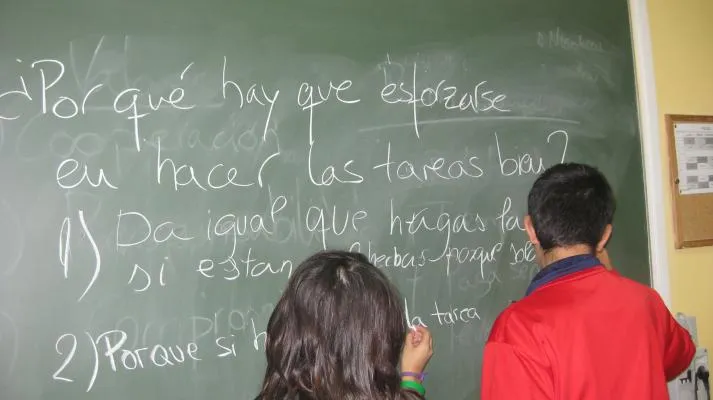 ¿Por qué hay que esforzarse
en hacer las tareas bien?
1) Da igual que hagas la
si estan porque
2) Porque si la tarea